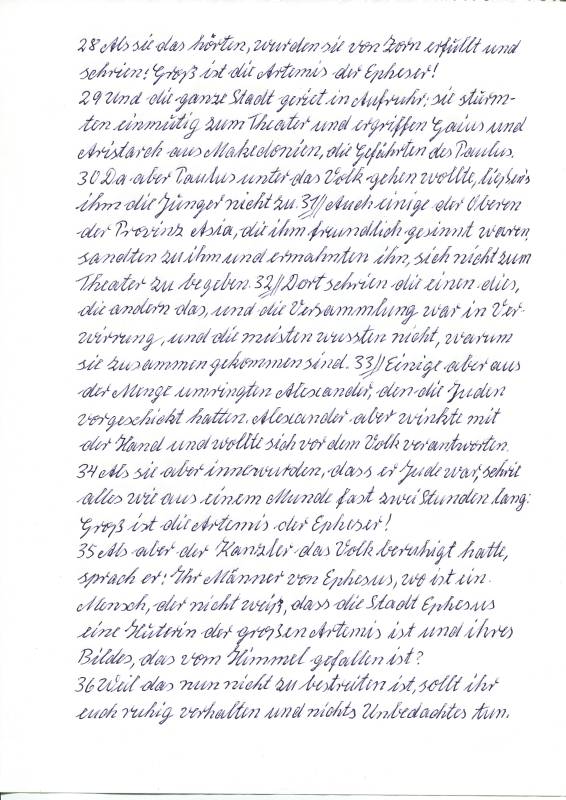 28 Als sie das hörten, wurden sie von Zorn erfüllt und
schrien: Groß ist die Artemis der Epheser!
29 Und die ganze Stadt geriet in Aufruhr; sie stürm-
ten einmütig zum Theater und ergriffen Gaius und
Aristarch aus Makedonien, die Gefährten des Paulus.
30 Da aber Paulus unter das Volk gehen wollte, ließen's
ihm die Jünger nicht zu. 31// Auch einige der Oberen
der Provinz Asia, die ihm freundlich gesinnt waren,
sandten zu ihm und ermahnten ihn, sich nicht zum
Theater zu begeben. 32// Dort schrien die einen dies,
die andern das, und die Versammlung war in Ver-
wirrung, und die meisten wussten nicht, warum
sie zusammengekommen sind. 33// Einige aber aus
der Menge umringten Alexander, den die Juden
vorgeschickt hatten. Alexander aber winkte mit
der Hand und wollte sich vor dem Volk verantworten.
34 Als sie aber innewurden, dass er Jude war, schrie
alles wie aus einem Munde fast zwei Stunden lang:
Groß ist die Artemis der Epheser!
35 Als aber der Kanzler das Volk beruhigt hatte,
sprach er: Ihr Männer von Ephesus, wo ist ein
Mensch, der nicht weiß, dass die Stadt Ephesus
eine Hüterin der großen Artemis ist und ihres
Bildes, das vom Himmel gefallen ist?
36 Weil das nun nicht zu bestreiten ist, sollt ihr
euch ruhig verhalten und nichts Unbedachtes tun.